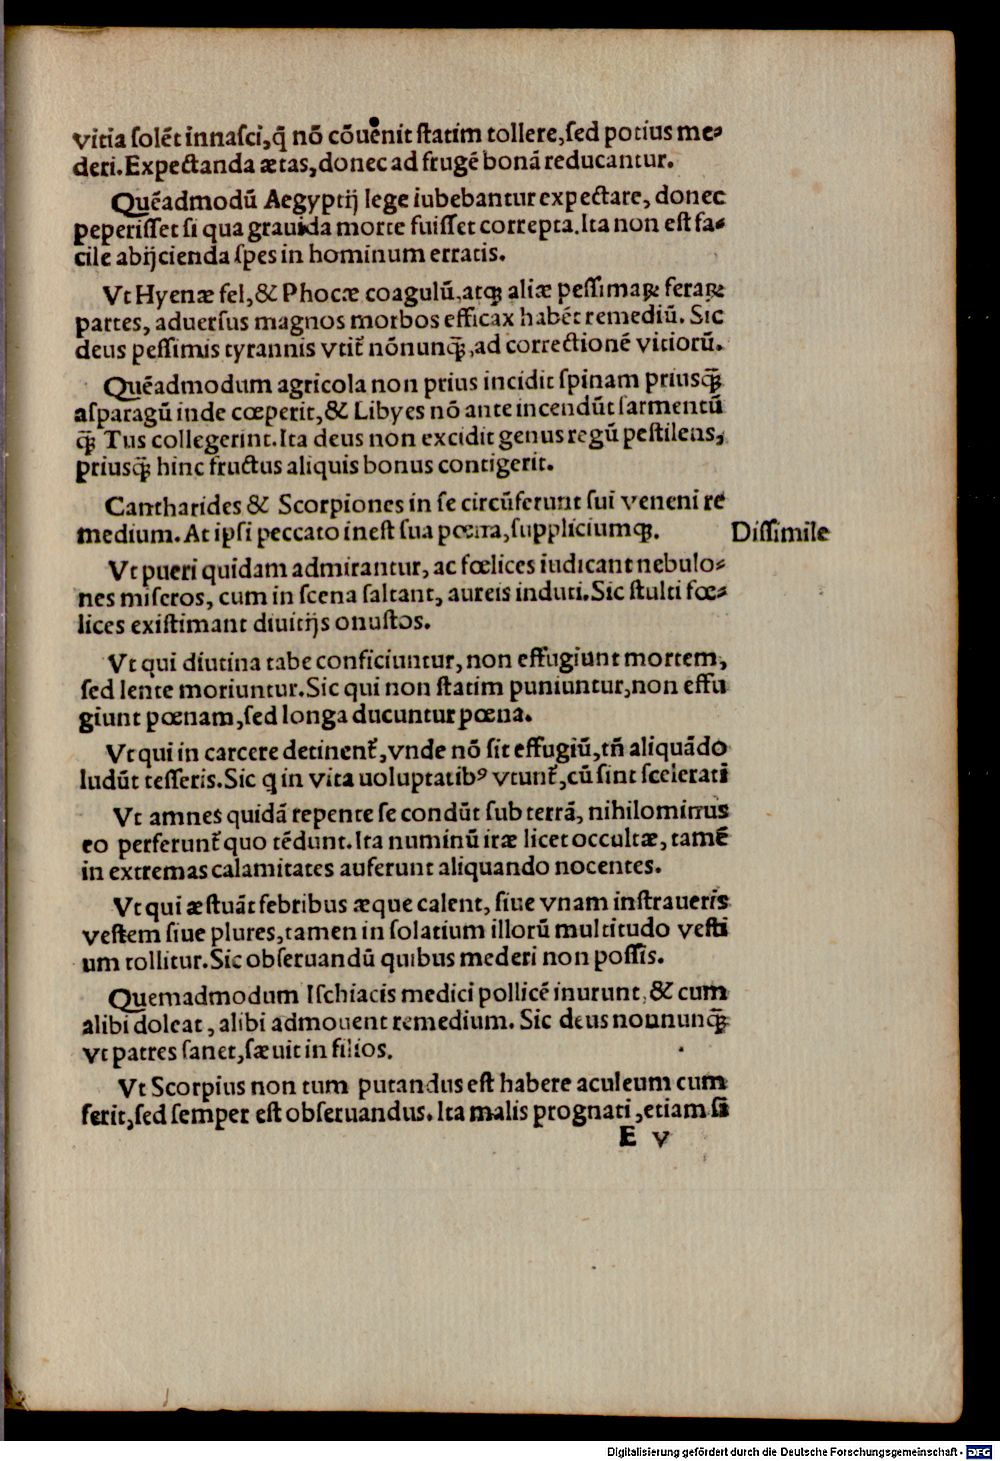 vitia solēt innasci, q̄ nō cōuenit statim tollere, sed potius me-
deri. Expectanda ætas, donec ad frugē bonā reducantur.
Quēadmodū Aegyptij lege iubebantur expectare, donec
peperisset si qua grauida morte fuisset correpta. Ita non est fa-
cile abijcienda spes in hominum erratis.
Vt Hyenæ fel, & Phocæ coagulū, atqꝫ aliæ pessimaꝝ feraꝝ
partes, aduersus magnos morbos efficax habēt remediū. Sic
deus pessimis tyrannis vtit᷑ nōnunqꝫ̄, ad correctionē vitiorū.
Quēadmodum agricola non prius incidit spinam priusqꝫ̄
asparagū inde cœperit, & Libyes nō ante incendūt sarmentū
qꝫ̄ Tus collegerint. Ita deus non excidit genus regū pestilens,
priusqꝫ̄ hinc fructus aliquis bonus contigerit.
Cantharides & Scorpiones in se circūferunt sui veneni re
medium. At ipsi peccato inest sua pœna, suppliciumqꝫ.
Dissimile
Vt pueri quidam admirantur, ac fœlices iudicant nebulo-
nes miseros, cum in scena saltant, aureis induti. Sic stulti fœ-
lices existimant diuitijs onustos.
Vt qui diutina tabe conficiuntur, non effugiunt mortem,
sed lente moriuntur. Sic qui non statim puniuntur, non effu
giunt pœnam, sed longa ducuntur pœna.
Vt qui in carcere detinent᷑, vnde nō sit effugiū, tn̄ aliquādo
ludūt tesseris. Sic q in vita uoluptatibꝰ vtunt᷑, cū sint scelerati
Vt amnes quidā repente se condūt sub terrā, nihilominus
eo perferunt᷑ quo tēdunt. Ita numinū iræ licet occultæ, tamē
in extremas calamitates auferunt aliquando nocentes.
Vt qui æstuāt febribus æque calent, siue vnam instraueris
vestem siue plures, tamen in solatium illorū multitudo vesti
um tollitur. Sic obseruandū quibus mederi non possis.
Quemadmodum Ischiacis medici pollicē inurunt, & cum
alibi doleat, alibi admouent remedium. Sic deus nonnunqꝫ̄
vt patres sanet, sæuit in filios.
Vt Scorpius non tum putandus est habere aculeum cum
ferit, sed semper est obseruandus. Ita malis prognati, etiam si
E v
Digitalisierung gefördert durch die Deutsche Forschungsgemeinschaft - DFG